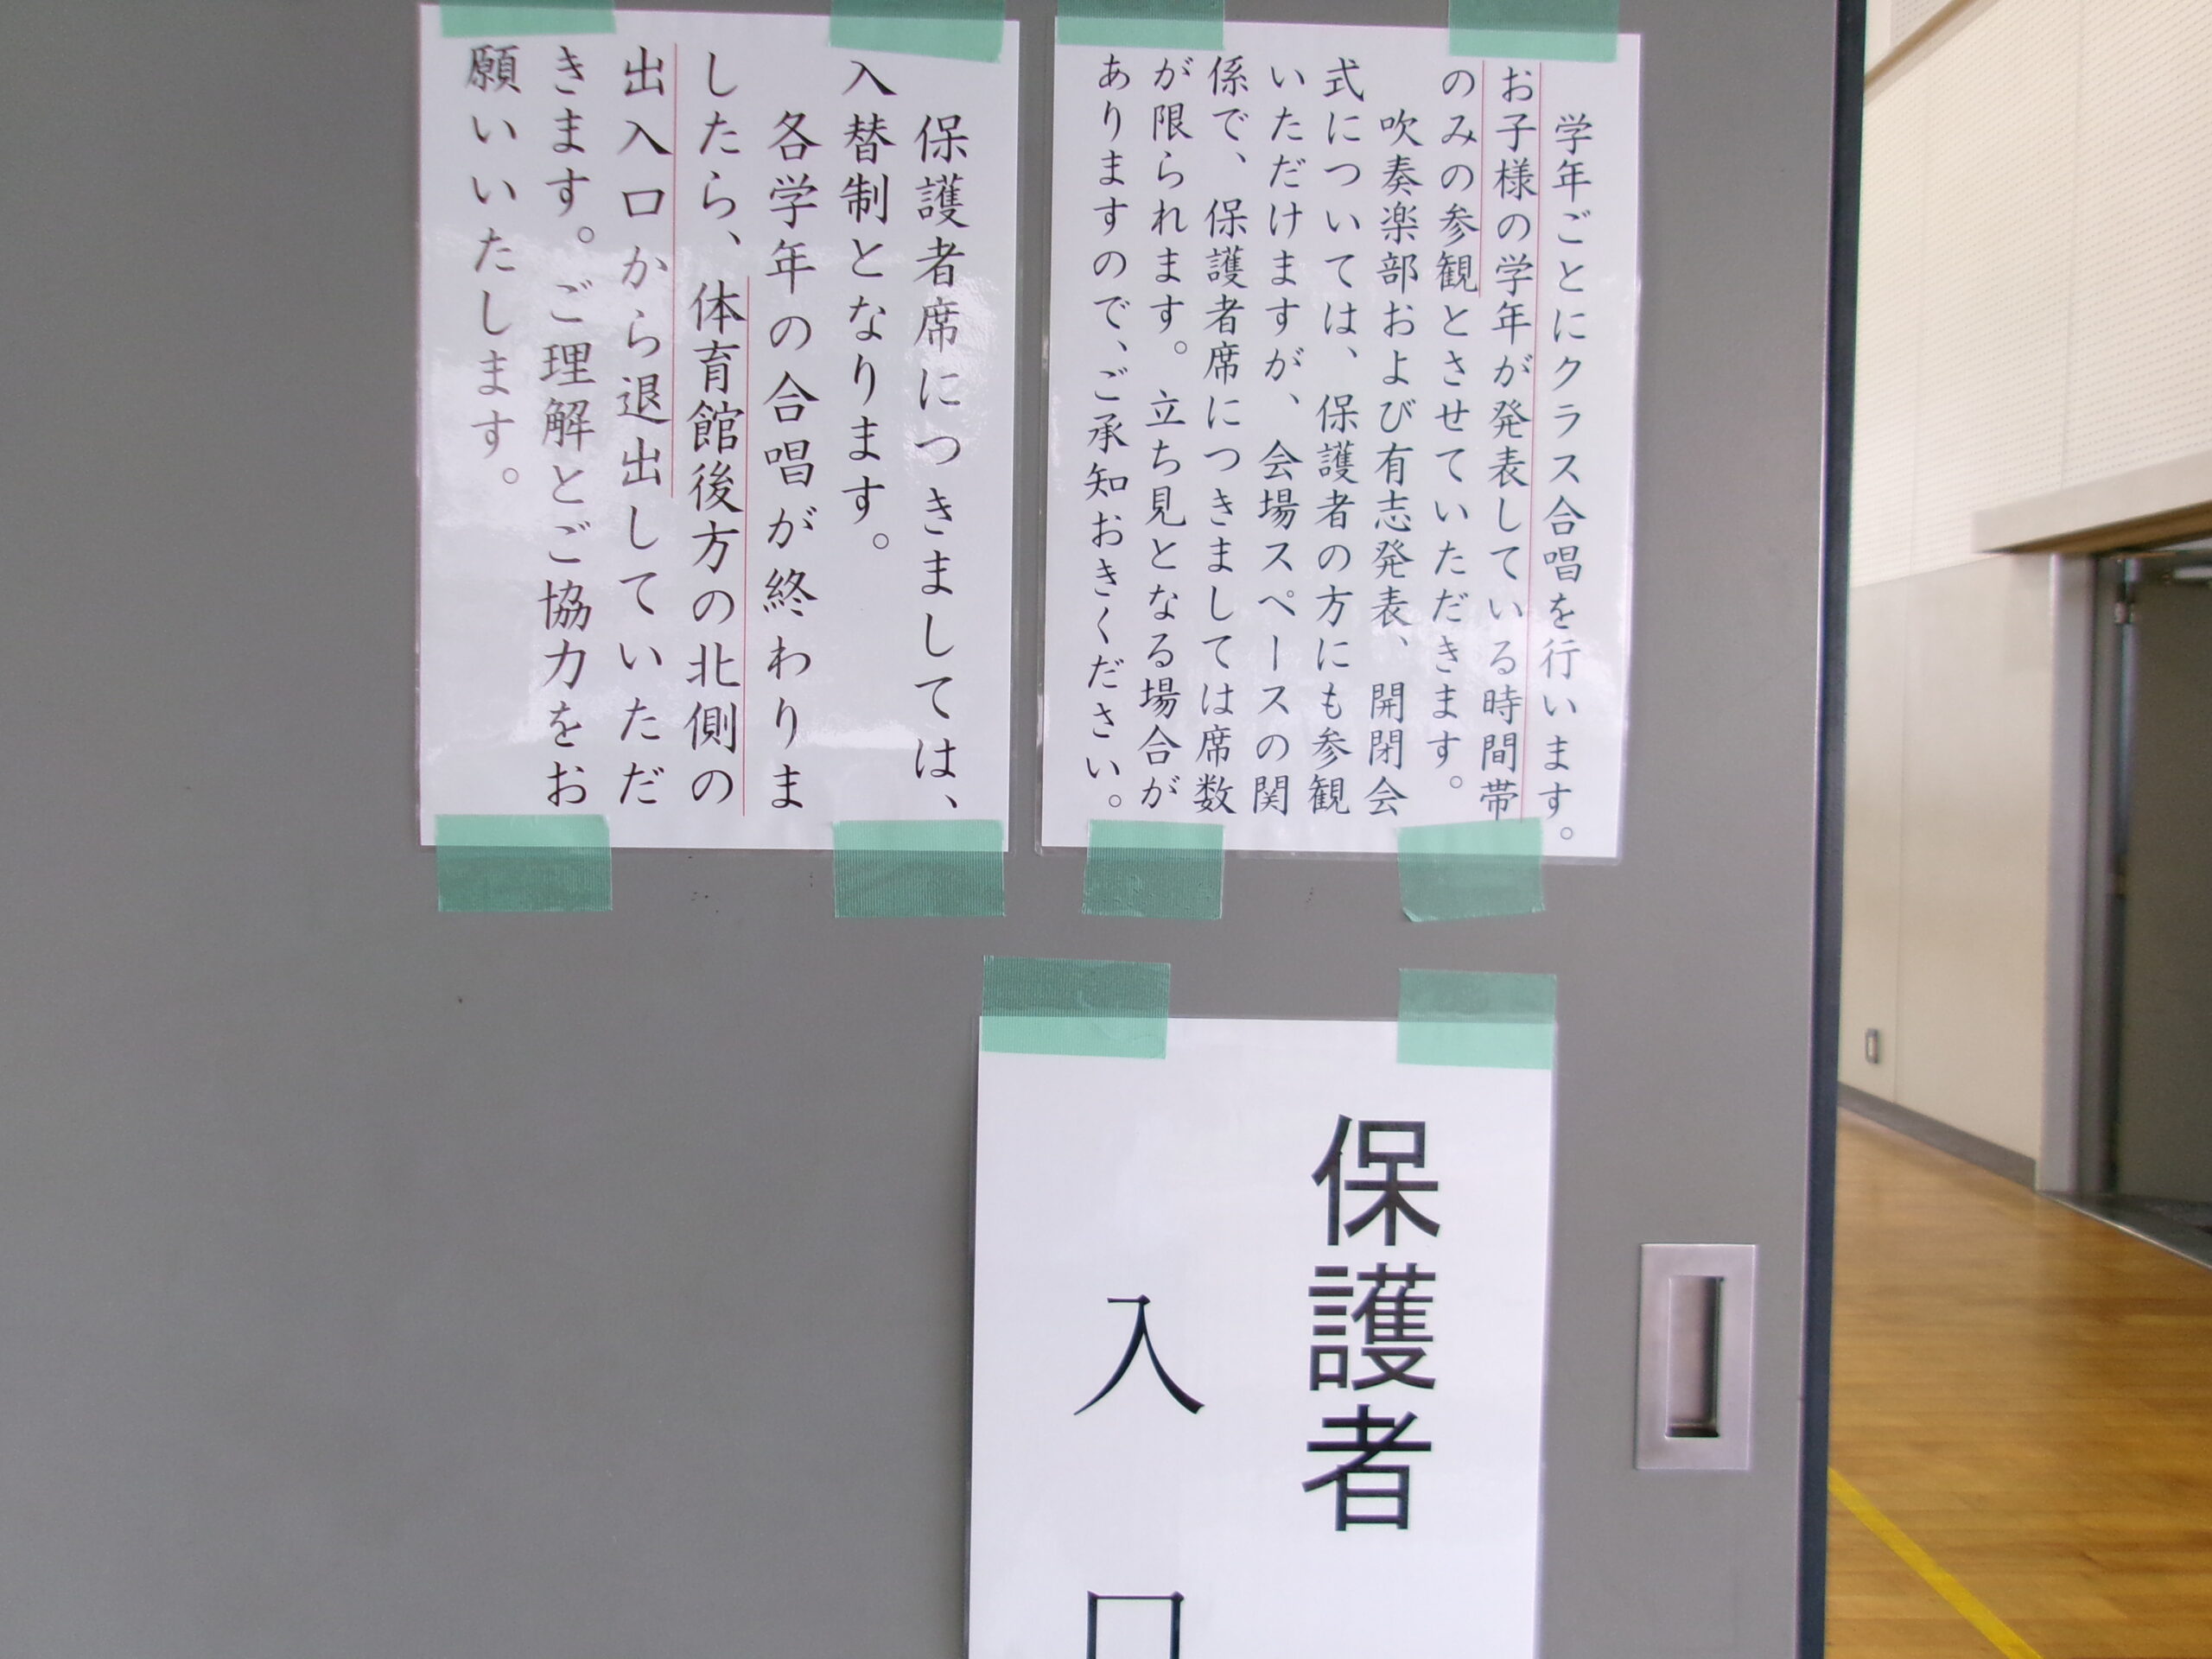 学年ごとにクラス合唱を行います。
お子様の学年が発表している時間帯
のみの参観とさせていただきます。
吹奏楽部および有志発表、開閉会
式については、保護者の方にも参観
いただけますが、会場スペースの関
係で、保護者席につきましては席数
が限られます。立ち見となる場合が
ありますので、ご承知おきください。
保護者席につきましては、
入替制となります。
各学年の合唱が終わりま
したら、体育館後方の北側の
出入口から退出していただ
きます。ご理解とご協力をお
願いいたします。
保護者
入口